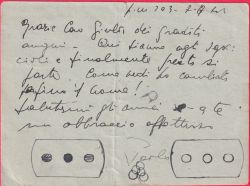 grazie Caro Giulio dei graditi
auguri - Qui siamo agli sgoc-
cioli e finalmente presto si
parte. Come vedi ho cambiato
perfino il nome!
Salutami gli amici e a te
un abbraccio affettuoso
Paolo